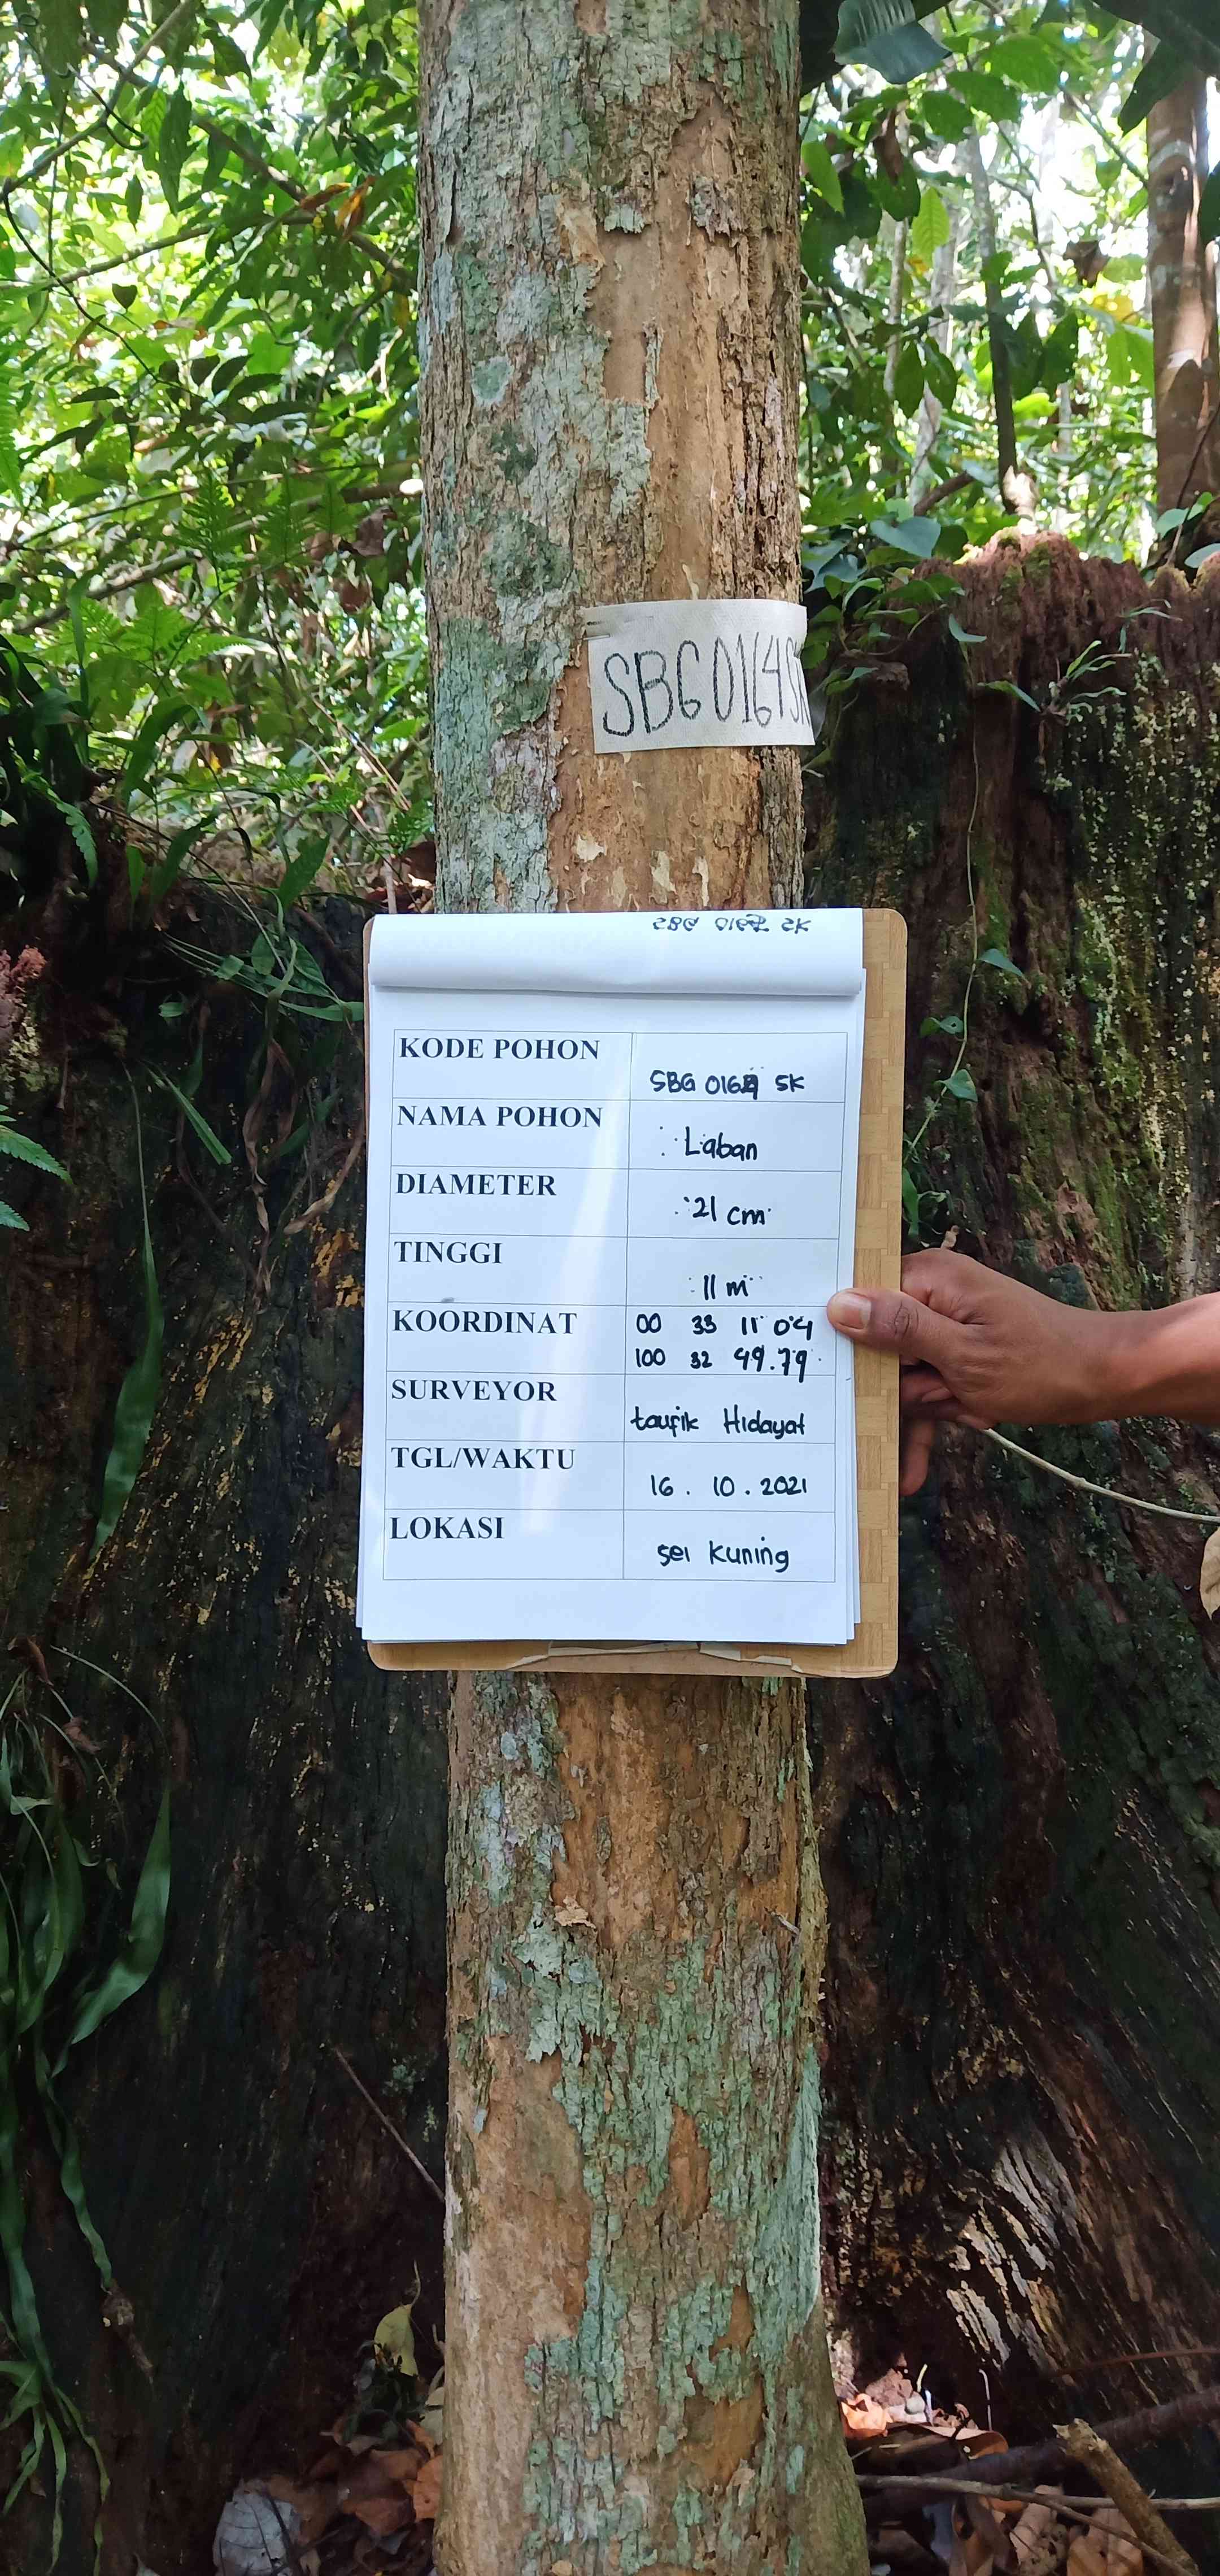 SBG 0164 SK
KODE POHON
SBG 0164 SK
NAMA POHON
: Laban
DIAMETER
: 21 cm
TINGGI
: 11 m
KOORDINAT
00 33 11 04
100 32 49.79
SURVEYOR
taufik Hidayat
TGL/WAKTU
16 . 10 . 2021
LOKASI
sei Kuning